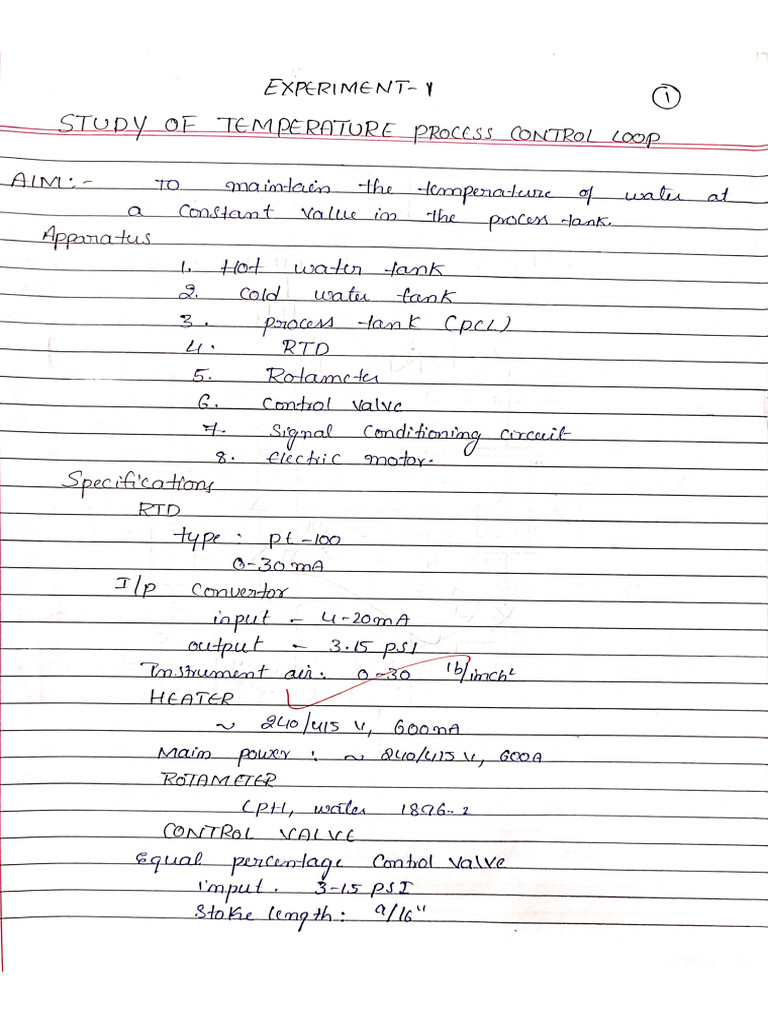 EXPERIMENT-1
1
STUDY OF TEMPERATURE PROCESS CONTROL LOOP
AIM:- TO maintain the temperature of water at
a constant value in the process tank.
Apparatus
1. Hot water tank
2. Cold water tank
3. process tank (PCL)
4. RTD
5. Rotameter
6. Control valve
7. Signal Conditioning circuit
8. electric motor.
Specifications
RTD
type: pt-100
0-30mA
I/p Convertor
input - 4-20mA
output - 3.15 PSI
Instrument air. 0-30 lb/inch²
HEATER
~ 240/415 V, 600mA
Main power: ~ 240/415 V, 600A
ROTAMETER
LPH, water 1896-2
CONTROL VALVE
Equal percentage Control valve
input. 3-15 PSI
Stoke length: 9/16"